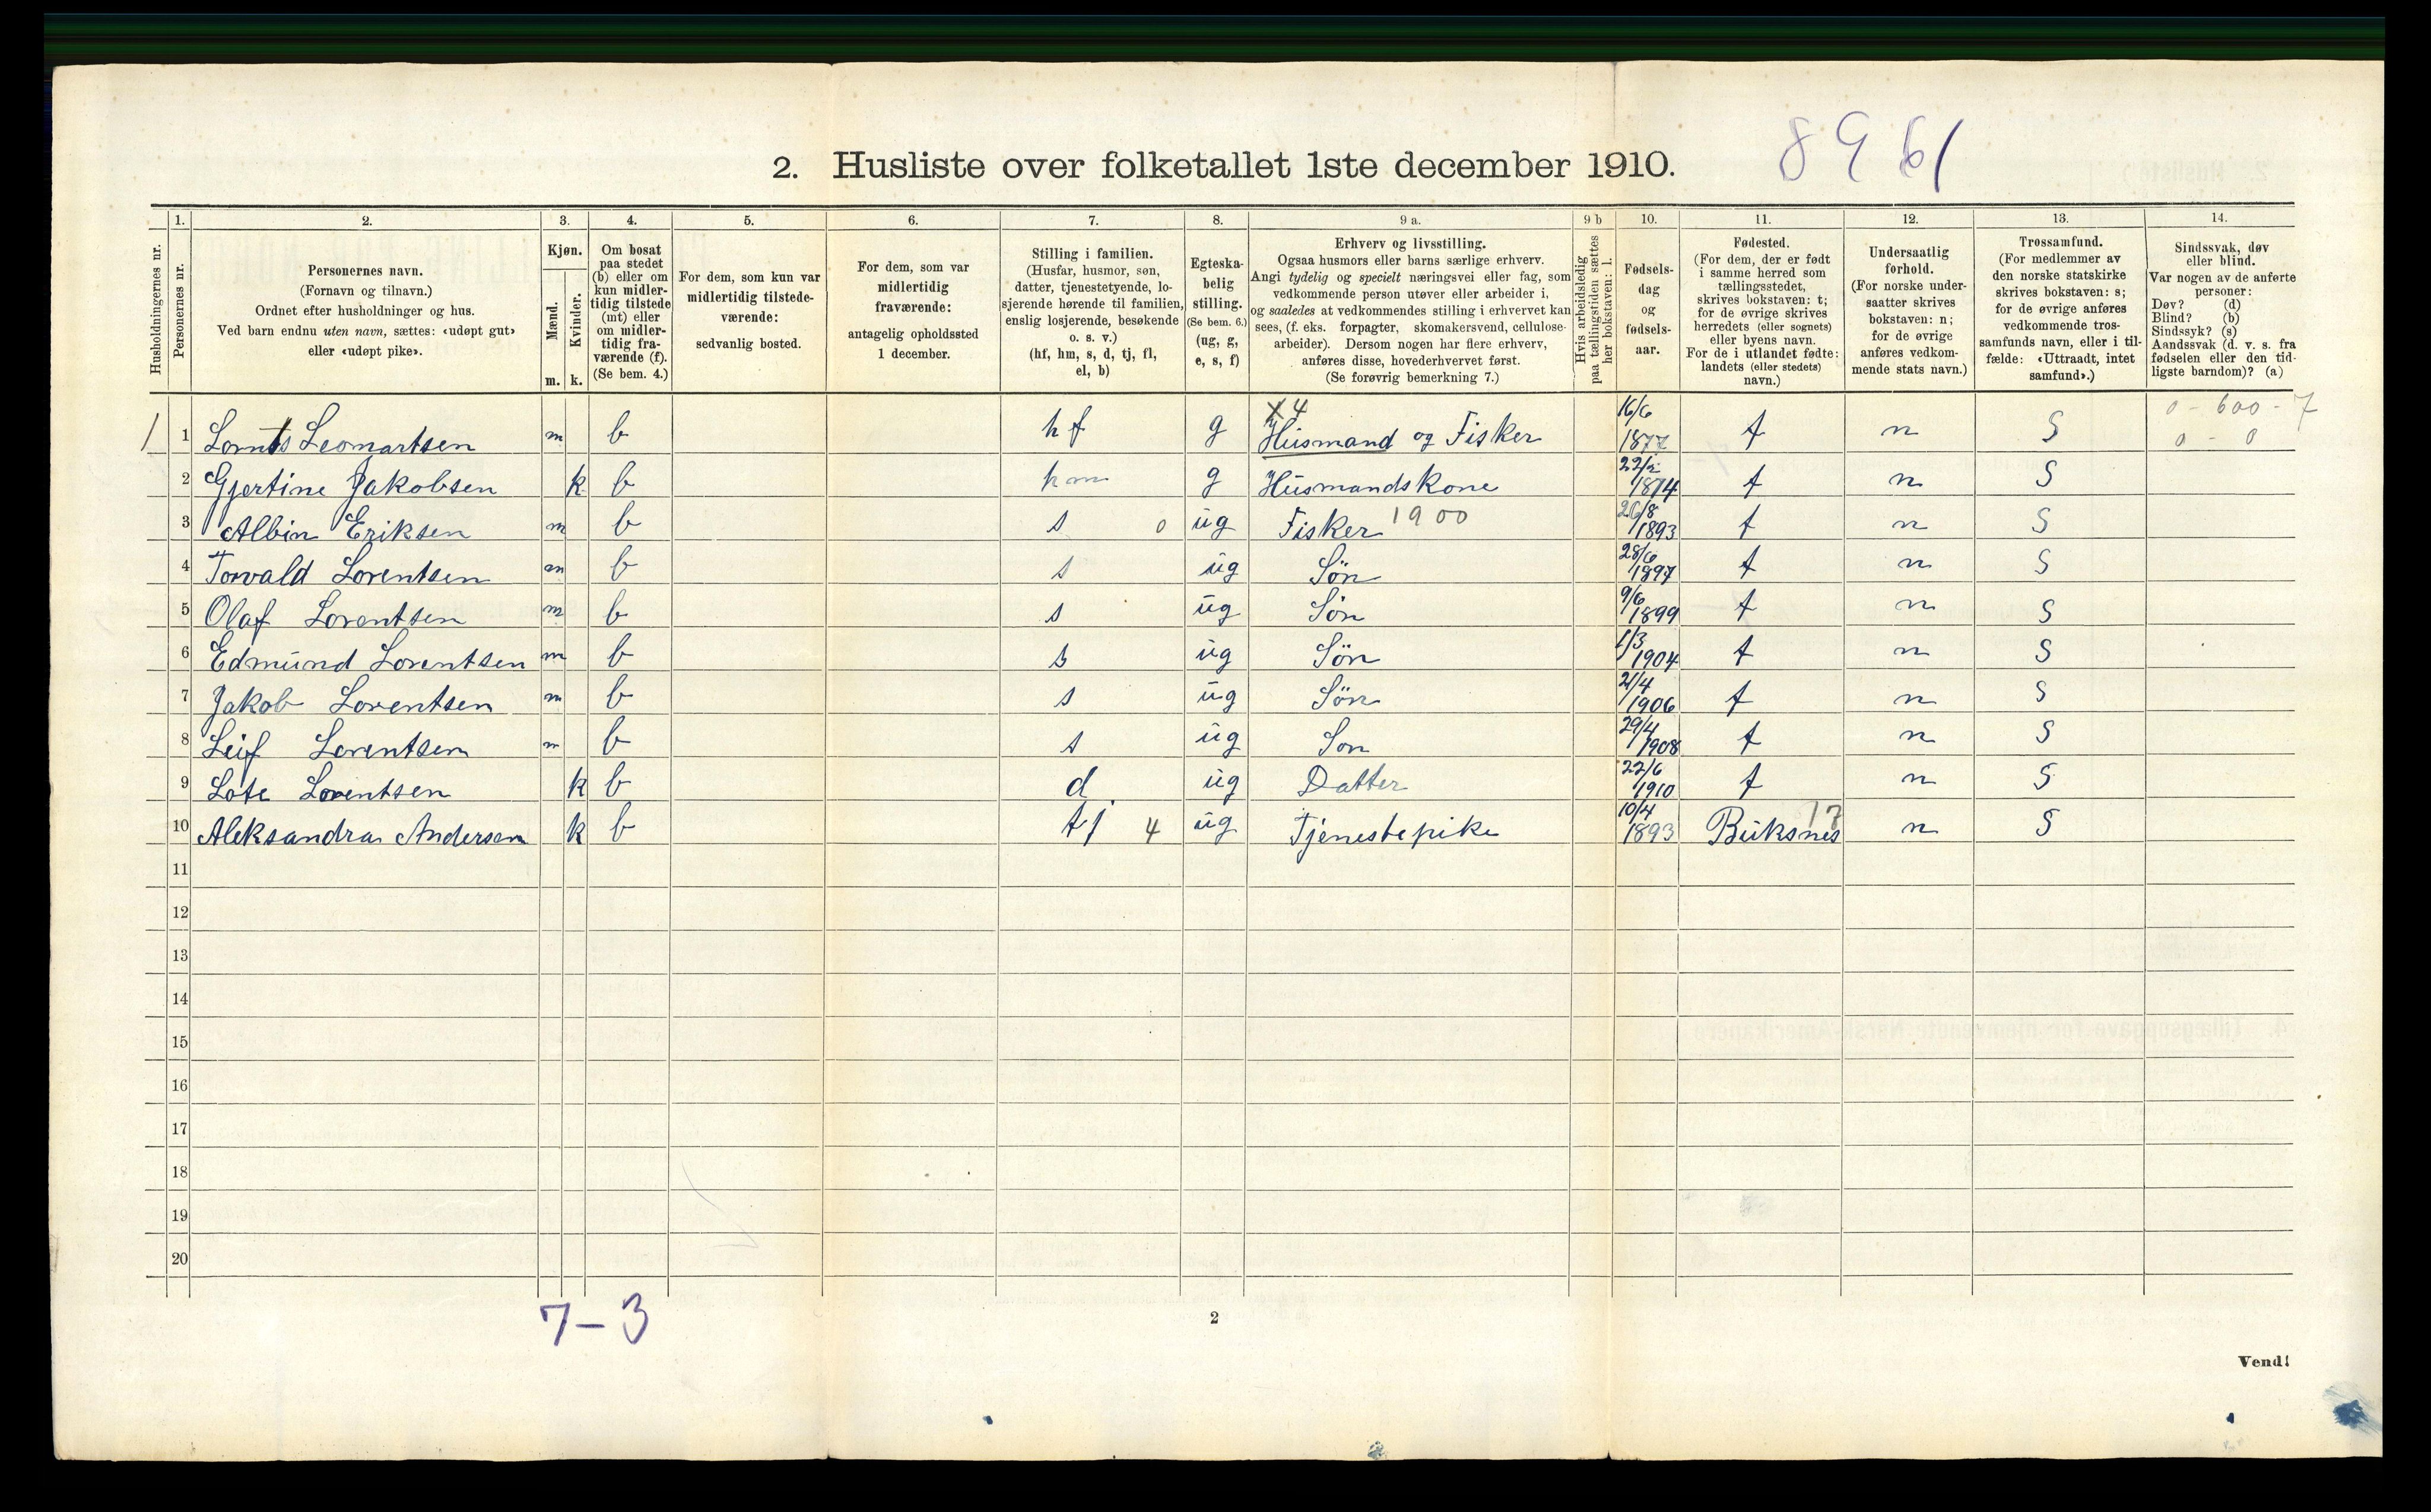 8961
2. Husliste over folketallet 1ste december 1910.
1. 2. 3. 4. 5. 6. 7. 8. 9 a. 9 b 10. 11. 12. 13. 14.
Husholdningernes nr.
Personernes nr.
Personernes navn.
(Fornavn og tilnavn.)
Ordnet efter husholdninger og hus.
Ved barn endnu uten navn, sættes: «udøpt gut»
eller «udøpt pike».
Kjøn.
Mænd.
Kvinder.
m. k.
Om bosat
paa stedet
(b) eller om
kun midler-
tidig tilstede
(mt) eller
om midler-
tidig fra-
værende (f).
(Se bem. 4.)
For dem, som kun var
midlertidig tilstede-
værende:
sedvanlig bosted.
For dem, som var
midlertidig
fraværende:
antagelig opholdssted
1 december.
Stilling i familien.
(Husfar, husmor, søn,
datter, tjenestetyende, lo-
sjerende hørende til familien,
enslig losjerende, besøkende
o. s. v.)
(hf, hm, s, d, tj, fl,
el, b)
Egteska-
belig
stilling.
(Se bem. 6.)
(ug, g,
e, s, f)
Erhverv og livsstilling.
Ogsaa husmors eller barns særlige erhverv.
Angi tydelig og specielt næringsvei eller fag, som
vedkommende person utøver eller arbeider i,
og saaledes at vedkommendes stilling i erhvervet kan
sees, (f. eks. forpagter, skomakersvend, cellulose-
arbeider). Dersom nogen har flere erhverv,
anføres disse, hovederhvervet først.
(Se forøvrig bemerkning 7.)
Hvis arbeidsledig
paa tællingstiden sættes
her bokstaven: l.
Fødsels-
dag
og
fødsels-
aar.
Fødested.
(For dem, der er født
i samme herred som
tællingsstedet,
skrives bokstaven: t;
for de øvrige skrives
herredets (eller sognets)
eller byens navn.
For de i utlandet fødte:
landets (eller stedets)
navn.)
Undersaatlig
forhold.
(For norske under-
saatter skrives
bokstaven: n;
for de øvrige
anføres vedkom-
mende stats navn.)
Trossamfund.
(For medlemmer av
den norske statskirke
skrives bokstaven: s;
for de øvrige anføres
vedkommende tros-
samfunds navn, eller i til-
fælde: «Uttraadt, intet
samfund».)
Sindssvak, døv
eller blind.
Var nogen av de anførte
personer:
Døv? (d)
Blind? (b)
Sindssyk? (s)
Aandssvak (d. v. s. fra
fødselen eller den tid-
ligste barndom)? (a)
X4 0 - 600 - 7
1 1 Lornts Leonartsen m b hf g Husmand og Fisker 16/6 1877 t n S 0 - 0
2 Gjertine Jakobsen k b hm g Husmandskone 1874 t n S
3 Albin Eriksen m b s 0 ug Fisker 1900 26/8 1893 t n S
4 Torvald Lorentsen m b s ug Sön 28/6 1897 t n S
5 Olaf Lorentsen m b s ug Sön 9/6 1899 t n S
6 Edmund Lorentsen m b s ug Sön 1/3 1904 t n S
7 Jakob Lorentsen m b s ug Sön 21/4 1906 t n S
8 Leif Lorentsen m b s ug Son 29/4 1908 t n S
9 Lote Lorentsen k b d ug Datter 22/6 1910 t n S
10 Aleksandra Andersen k b tj 4 ug Tjenestepike 10/4 1893 Buksnes n S
11
12
13
14
15
16
17
18
19
20
7-3
2
Vend!